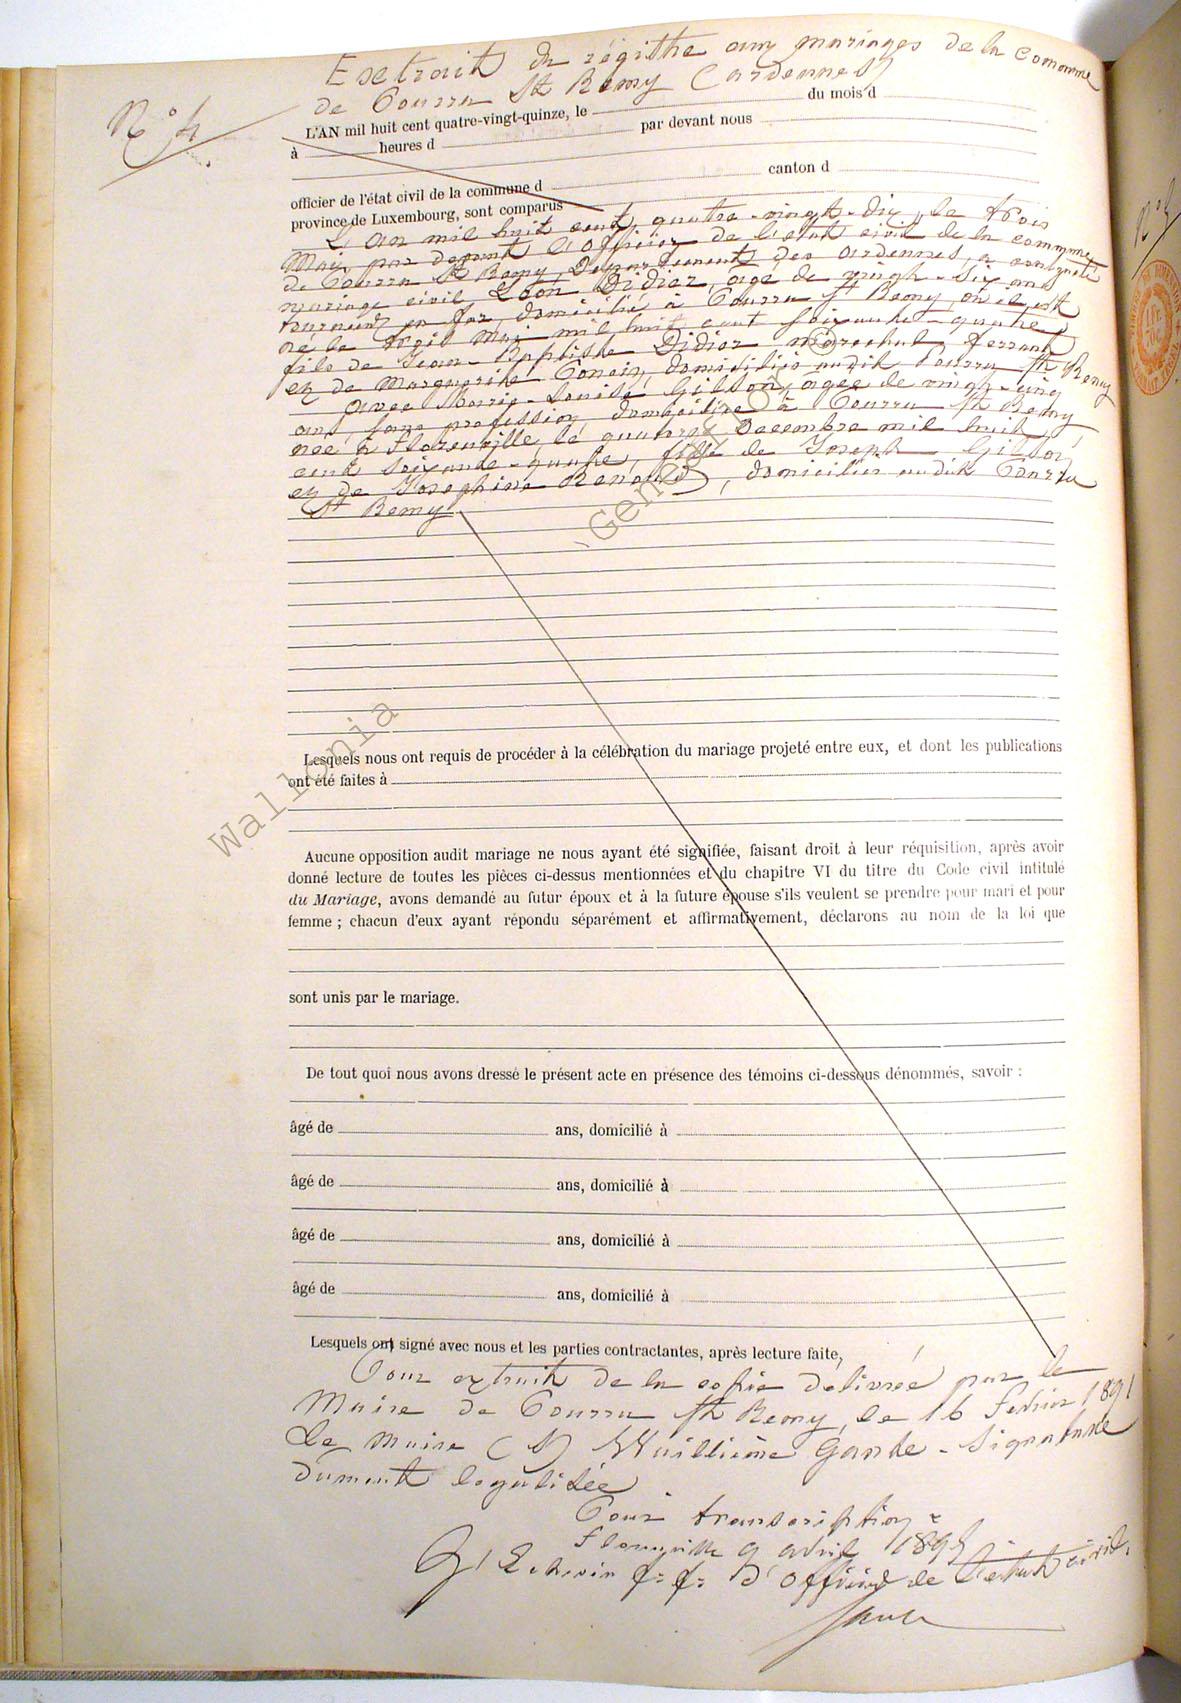 Extrait du régitre aux mariages de la Commune
de Pourru St Remy (Ardennes)
N° 4
L'AN mil huit cent quatre-vingt-quinze, le du mois d
à heures d par devant nous
officier de l'état civil de la commune d canton d
province de Luxembourg, sont comparus
L'an mil huit cent quatre-vingt-dix, le trois
Mai, par devant l'officier de l'état civil de la commune
de Pourru St Remy, Departement des Ardennes, a contracté
mariage civil Léon Didier, âgé de vingt-six ans
tourneur en fer, domicilié à Pourru St Remy, où il est
né le trois Mai mil huit cent soixante-quatre,
fils de Jean-Baptiste Didier maréchal ferrant
et de Marguerite domiciliés audit Pourru St Remy
Avec Marie-Louise Gilson, agée de vingt-cinq
ans, sans profession domiciliée à Pourru St Remy
née à Florenville le quatorze Decembre mil huit
cent soixante-quatre, fille de Joseph Gilson
et de Josephine Renauld, domiciliés audit Pourru
St Remy
Lesquels nous ont requis de procéder à la célébration du mariage projeté entre eux, et dont les publications
ont été faites à
Aucune opposition audit mariage ne nous ayant été signifiée, faisant droit à leur réquisition, après avoir
donné lecture de toutes les pièces ci-dessus mentionnées et du chapitre VI du titre du Code civil intitulé
du Mariage, avons demandé au futur époux et à la future épouse s'ils veulent se prendre pour mari et pour
femme ; chacun d'eux ayant répondu séparément et affirmativement, déclarons au nom de la loi que
sont unis par le mariage.
De tout quoi nous avons dressé le présent acte en présence des témoins ci-dessous dénommés, savoir :
âgé de ans, domicilié à
âgé de ans, domicilié à
âgé de ans, domicilié à
âgé de ans, domicilié à
Lesquels ont signé avec nous et les parties contractantes, après lecture faite,
Pour extrait de la copie délivrée par le
Maire de Pourru St Remy, le 16 Février 1891
Le Maire (S) Wuillième Gande - Signature
dument légalisée
Pour transcription
Florenville 9 avril 1895
L'Echevin f.f. d'officier de l'état civil.
Wallonia
Genealor ©